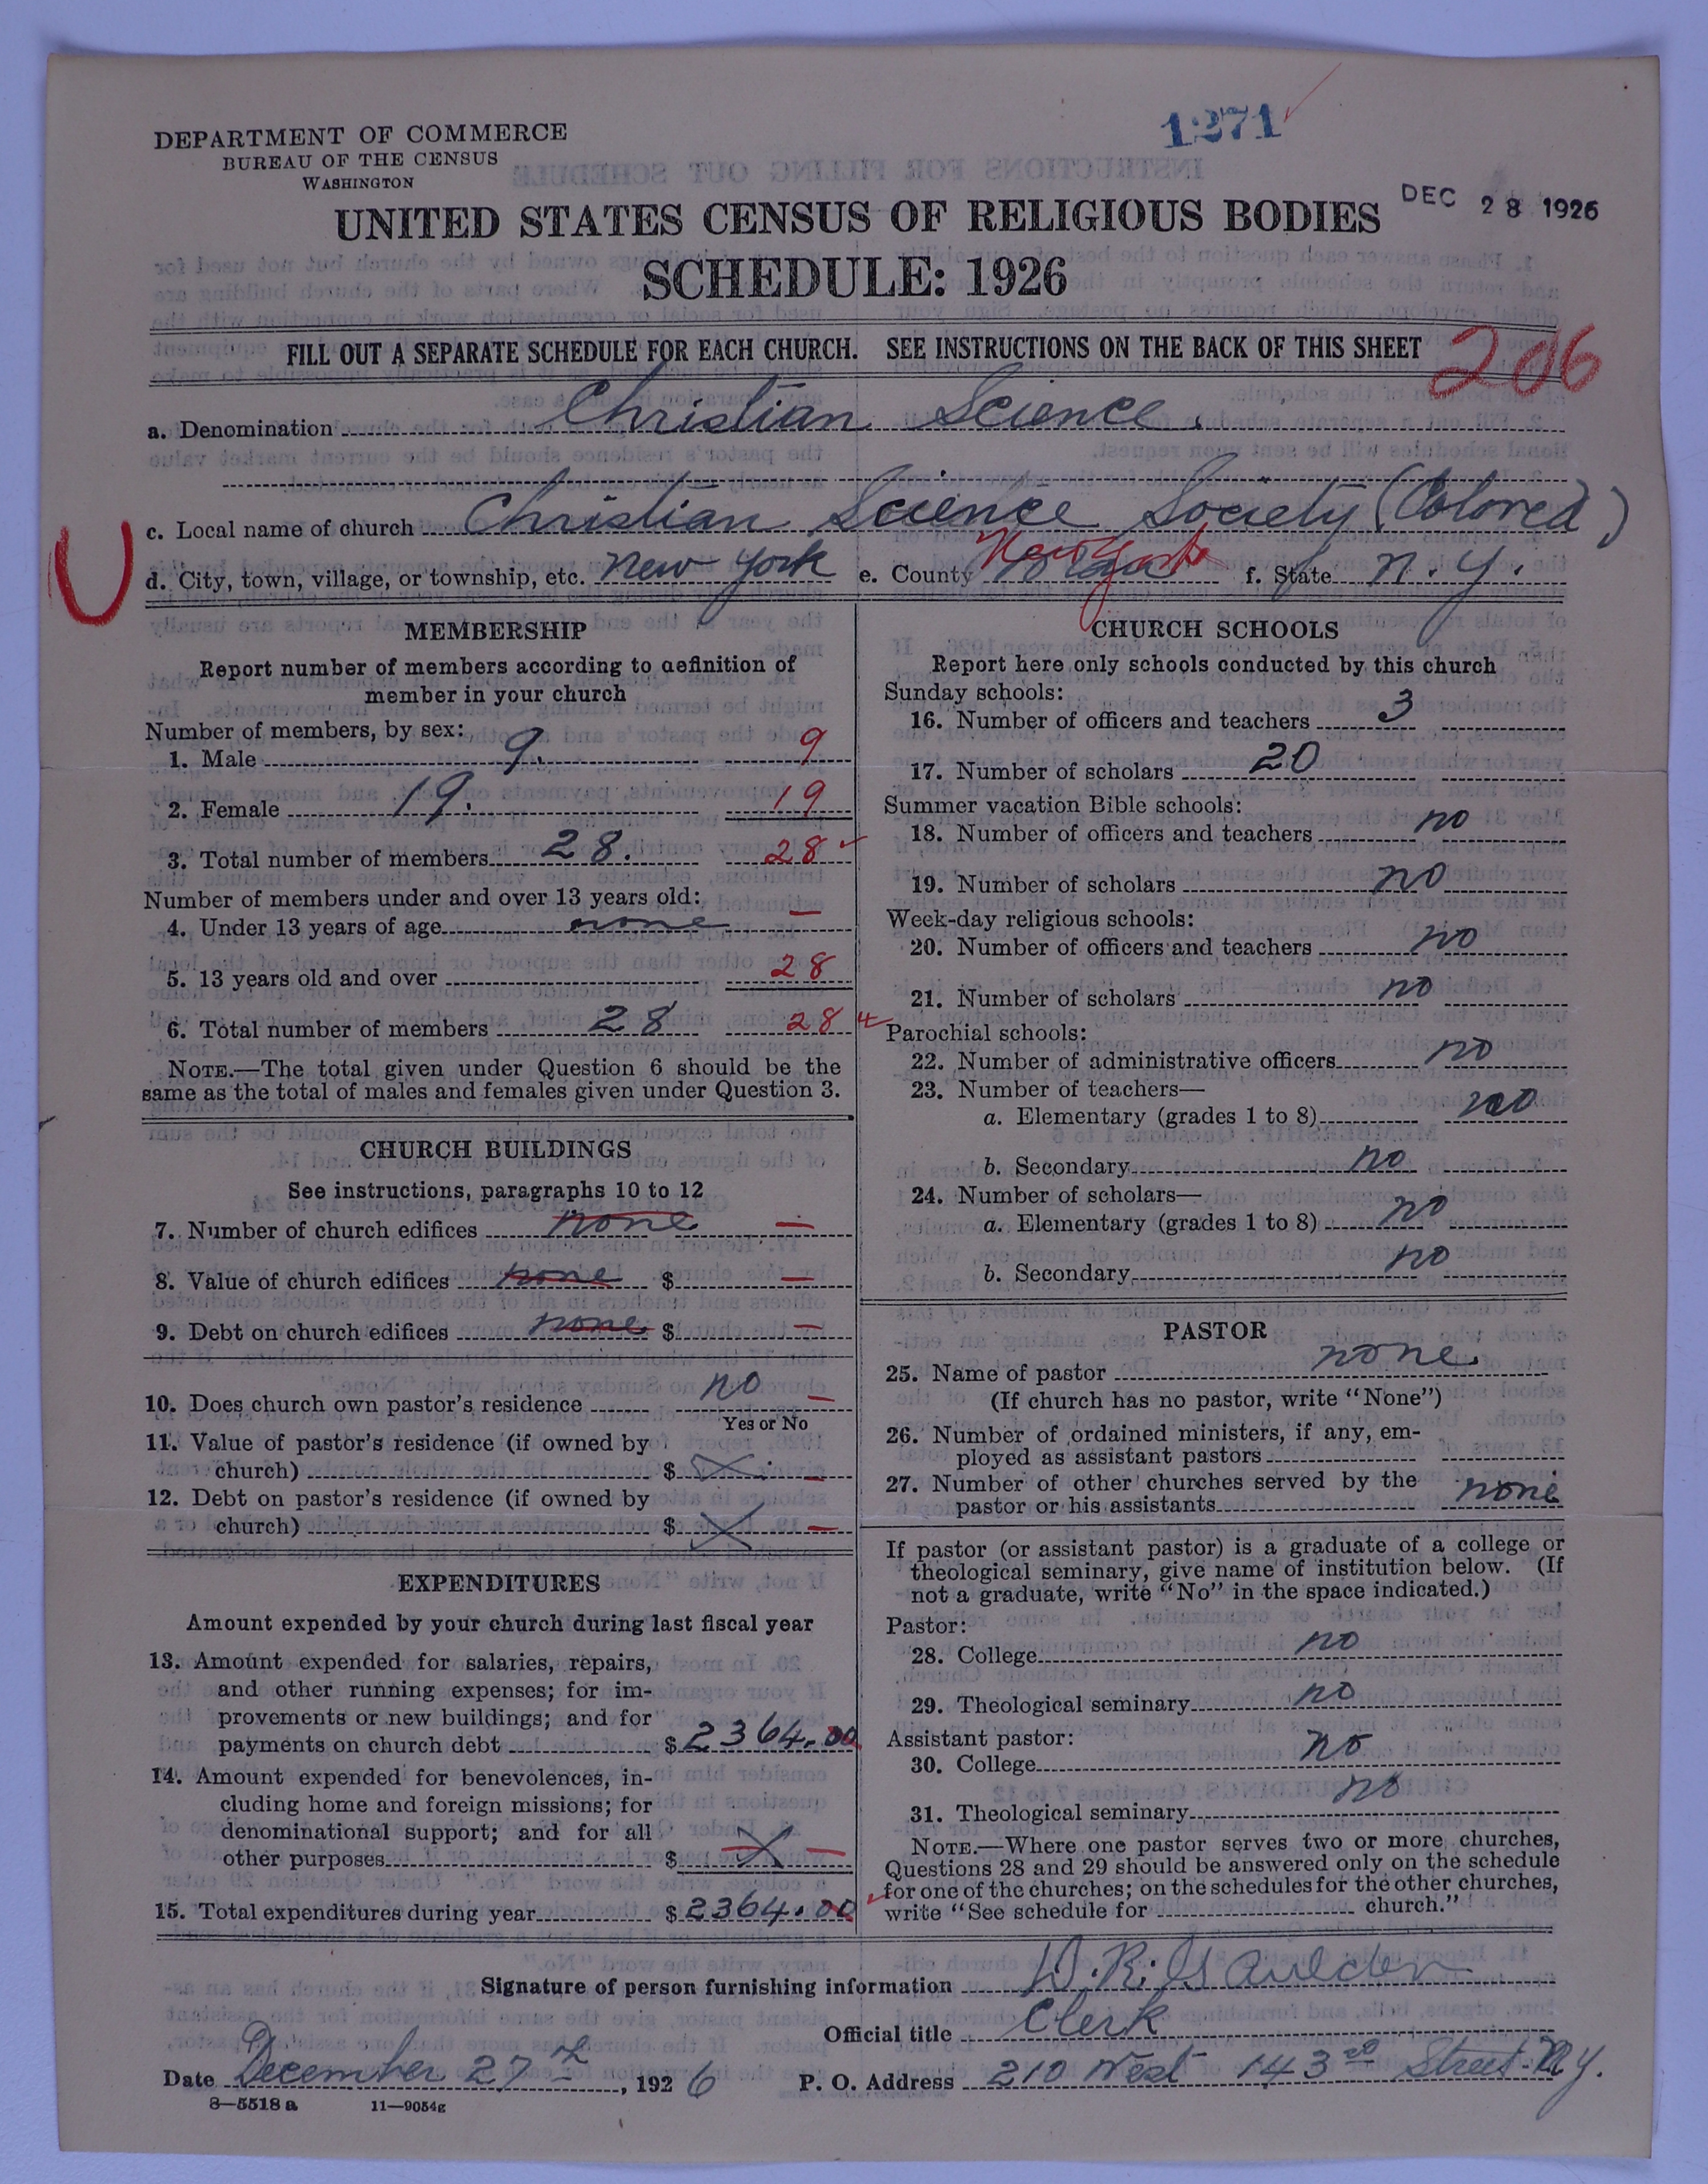 1271
DEPARTMENT OF COMMERCE
BUREAU OF THE CENSUS
WASHINGTON
DEC 28 1926
UNITED STATES CENSUS OF RELIGIOUS BODIES
SCHEDULE: 1926
FILL OUT A SEPARATE SCHEDULE FOR EACH CHURCH. SEE INSTRUCTIONS ON THE BACK OF THIS SHEET
206
a. Denomination Christian Science.
c. Local name of church Christian Science Society (Colored)
U
d. City, town, village, or township, etc. New York e. County New York f. State N.Y.
MEMBERSHIP
Report number of members according to definition of
member in your church
Number of members, by sex:
1. Male 9. 9
2. Female 19. 19
3. Total number of members 28. 28
Number of members under and over 13 years old:
4. Under 13 years of age none —
5. 13 years old and over 28
6. Total number of members 28 28
NOTE.—The total given under Question 6 should be the
same as the total of males and females given under Question 3.
CHURCH BUILDINGS
See instructions, paragraphs 10 to 12
7. Number of church edifices none —
8. Value of church edifices none $ —
9. Debt on church edifices none $ —
10. Does church own pastor's residence no —
Yes or No
11. Value of pastor's residence (if owned by
church) $ X —
12. Debt on pastor's residence (if owned by
church) $ X —
EXPENDITURES
Amount expended by your church during last fiscal year
13. Amount expended for salaries, repairs,
and other running expenses; for im-
provements or new buildings; and for
payments on church debt $ 2364.00
14. Amount expended for benevolences, in-
cluding home and foreign missions; for
denominational support; and for all
other purposes $ X —
15. Total expenditures during year $ 2364.00
CHURCH SCHOOLS
Report here only schools conducted by this church
Sunday schools:
16. Number of officers and teachers 3
17. Number of scholars 20
Summer vacation Bible schools:
18. Number of officers and teachers no
19. Number of scholars no
Week-day religious schools:
20. Number of officers and teachers no
21. Number of scholars no
Parochial schools:
22. Number of administrative officers no
23. Number of teachers—
a. Elementary (grades 1 to 8) no
b. Secondary no
24. Number of scholars—
a. Elementary (grades 1 to 8) no
b. Secondary no
PASTOR
25. Name of pastor none.
(If church has no pastor, write "None")
26. Number of ordained ministers, if any, em-
ployed as assistant pastors
27. Number of other churches served by the
pastor or his assistants none
If pastor (or assistant pastor) is a graduate of a college or
theological seminary, give name of institution below. (If
not a graduate, write "No" in the space indicated.)
Pastor:
28. College no
29. Theological seminary no
Assistant pastor:
30. College no
31. Theological seminary no
NOTE.—Where one pastor serves two or more churches,
Questions 28 and 29 should be answered only on the schedule
for one of the churches; on the schedules for the other churches,
write "See schedule for church."
Signature of person furnishing information W. R. Gaulden
Official title Clerk
Date December 27th, 1926 P. O. Address 210 West 143rd Street. N.Y.
8—5518 a 11—9054g